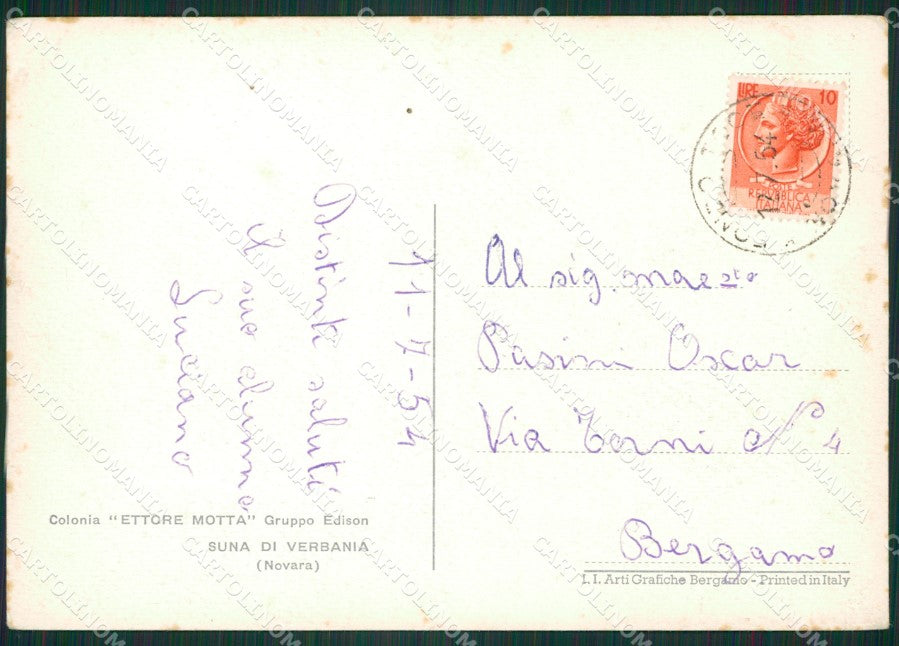 LIRE 10
POSTE
REPUBBLICA
ITALIANA
11-7-54
Distinti saluti
Il suo alunno
Luciano
Al sig. maesto
Pasini Oscar
Via Terni N 4
Bergamo
Colonia "ETTORE MOTTA" Gruppo Edison
SUNA DI VERBANIA
(Novara)
I. I. Arti Grafiche Bergamo - Printed in Italy
CARTOLINOMANIA